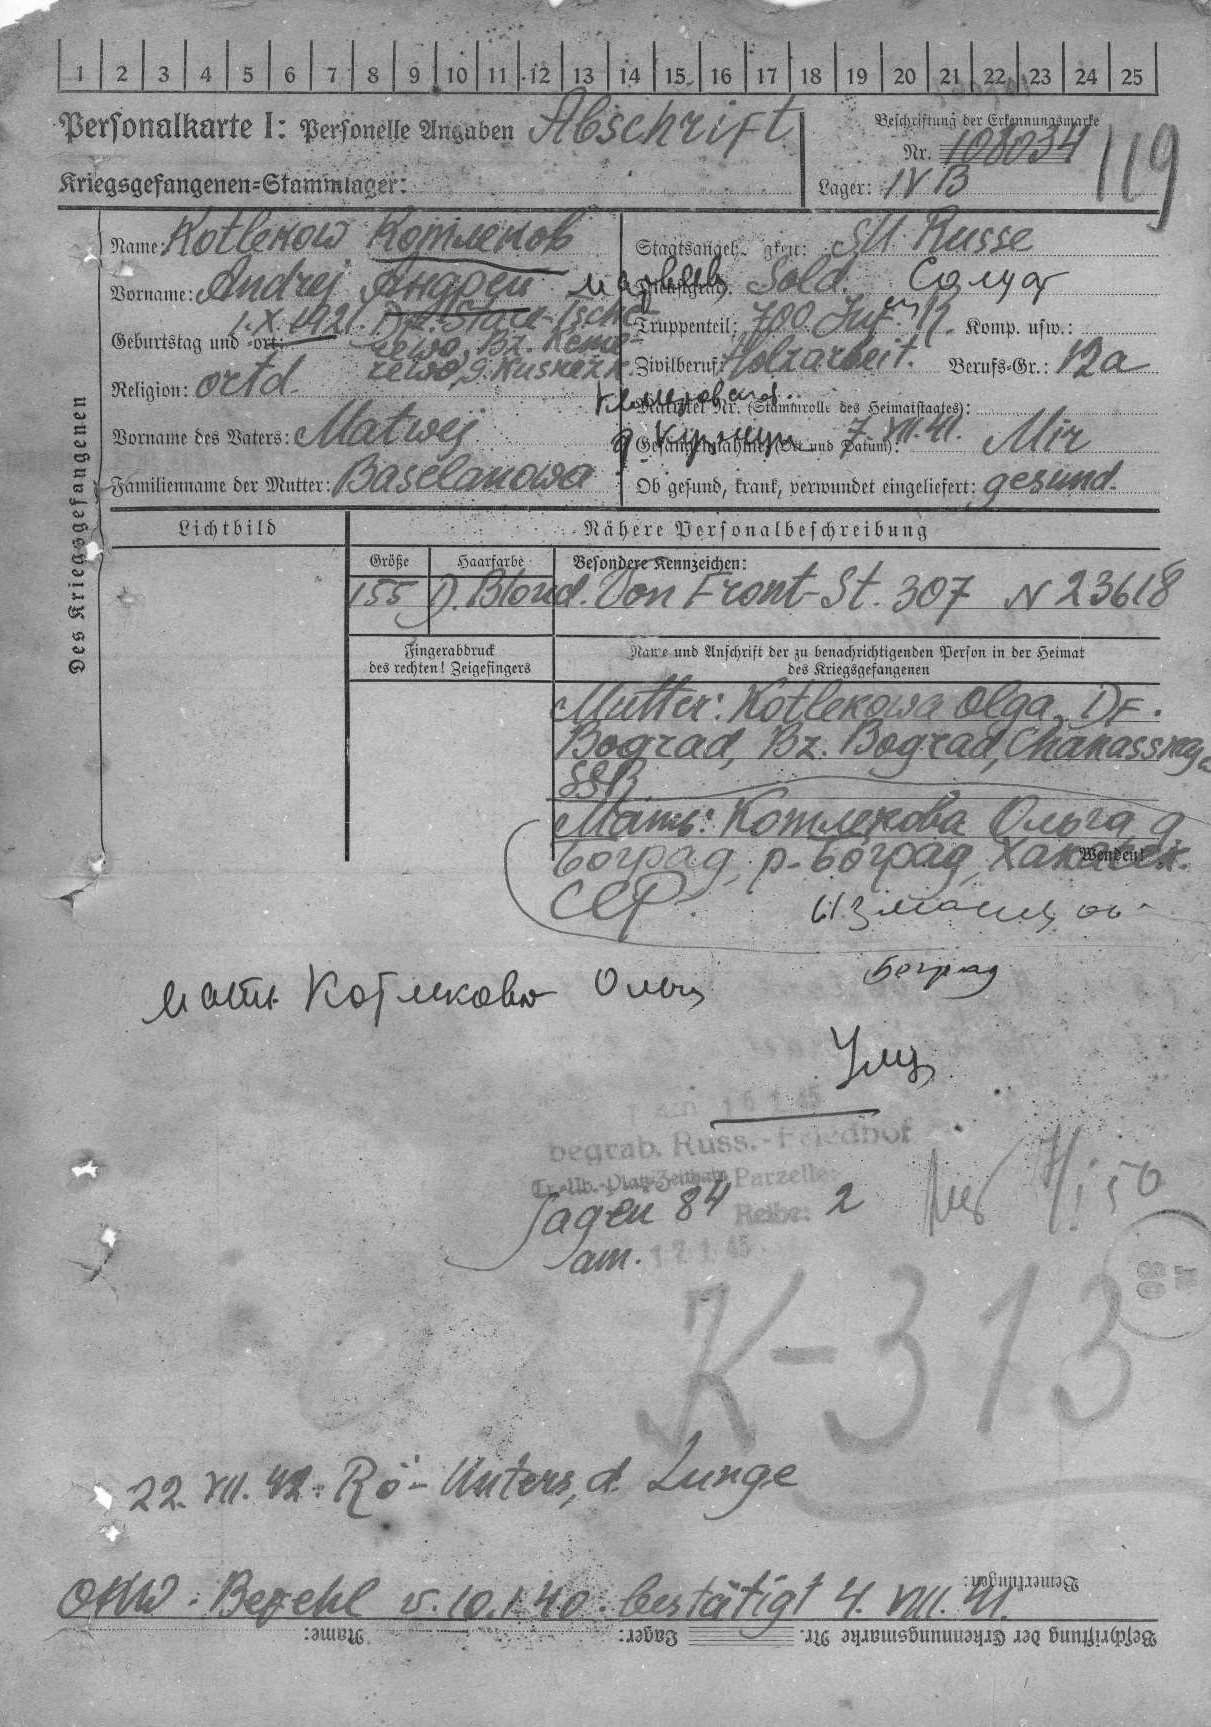 1 2 3 4 5 6 7 8 9 10 11 12 13 14 15 16 17 18 19 20 21 22 23 24 25
Personalkarte I: Personelle Angaben Abschrift
Beschriftung der Erkennungsmarke
Nr. 108034
119
Kriegsgefangenen-Stammlager:
Lager: IV B
Des Kriegsgefangenen
Name: Kotlekow Котлеков
Staatsangeh gkeit: SU. Russe
Vorname: Andrej Андреи
Dienstgrad: Sold. Солдат
Geburtstag und -ort: 1.X.1921.
Truppenteil: 700 Inf. Komp. usw.:
Zivilberuf: Holzarbeit. Berufs-Gr.: 12a
Religion: ortd.
Matrikel Nr. (Stammrolle des Heimatstaates):
Vorname des Vaters: Matwej
Gefangennahme (Ort und Datum): 7.VII.41. Mir
Familienname der Mutter: Baselanowa
Ob gesund, krank, verwundet eingeliefert: gesund.
Lichtbild
Nähere Personalbeschreibung
Größe Haarfarbe Besondere Kennzeichen:
155 D. Blond. Von Front-St. 307 N 23618
Fingerabdruck
des rechten! Zeigefingers
Name und Anschrift der zu benachrichtigenden Person in der Heimat
des Kriegsgefangenen
Mutter: Kotlekowa Olga, DF.
Bograd, Bz. Bograd, Chakasskaja
SSR
Мать: Котлекова Ольга д
Боград, р-Боград, Хакасск.
Wenden!
ССР.
Боград
мать Котлекова Ольга
begrab. Russ.-Friedhof
Tr.-Üb.-Platz Zeithain Parzelle:
Jagen 84 Reihe: 2
am. 17.1.45
K-313
22.VII.42. Rö-Unters, d. Lunge
Bemerkungen:
OKW-Befehl v. 10.1.40. bestätigt 4.VIII.41.
Beschriftung der Erkennungsmarke Nr. Lager: Name: